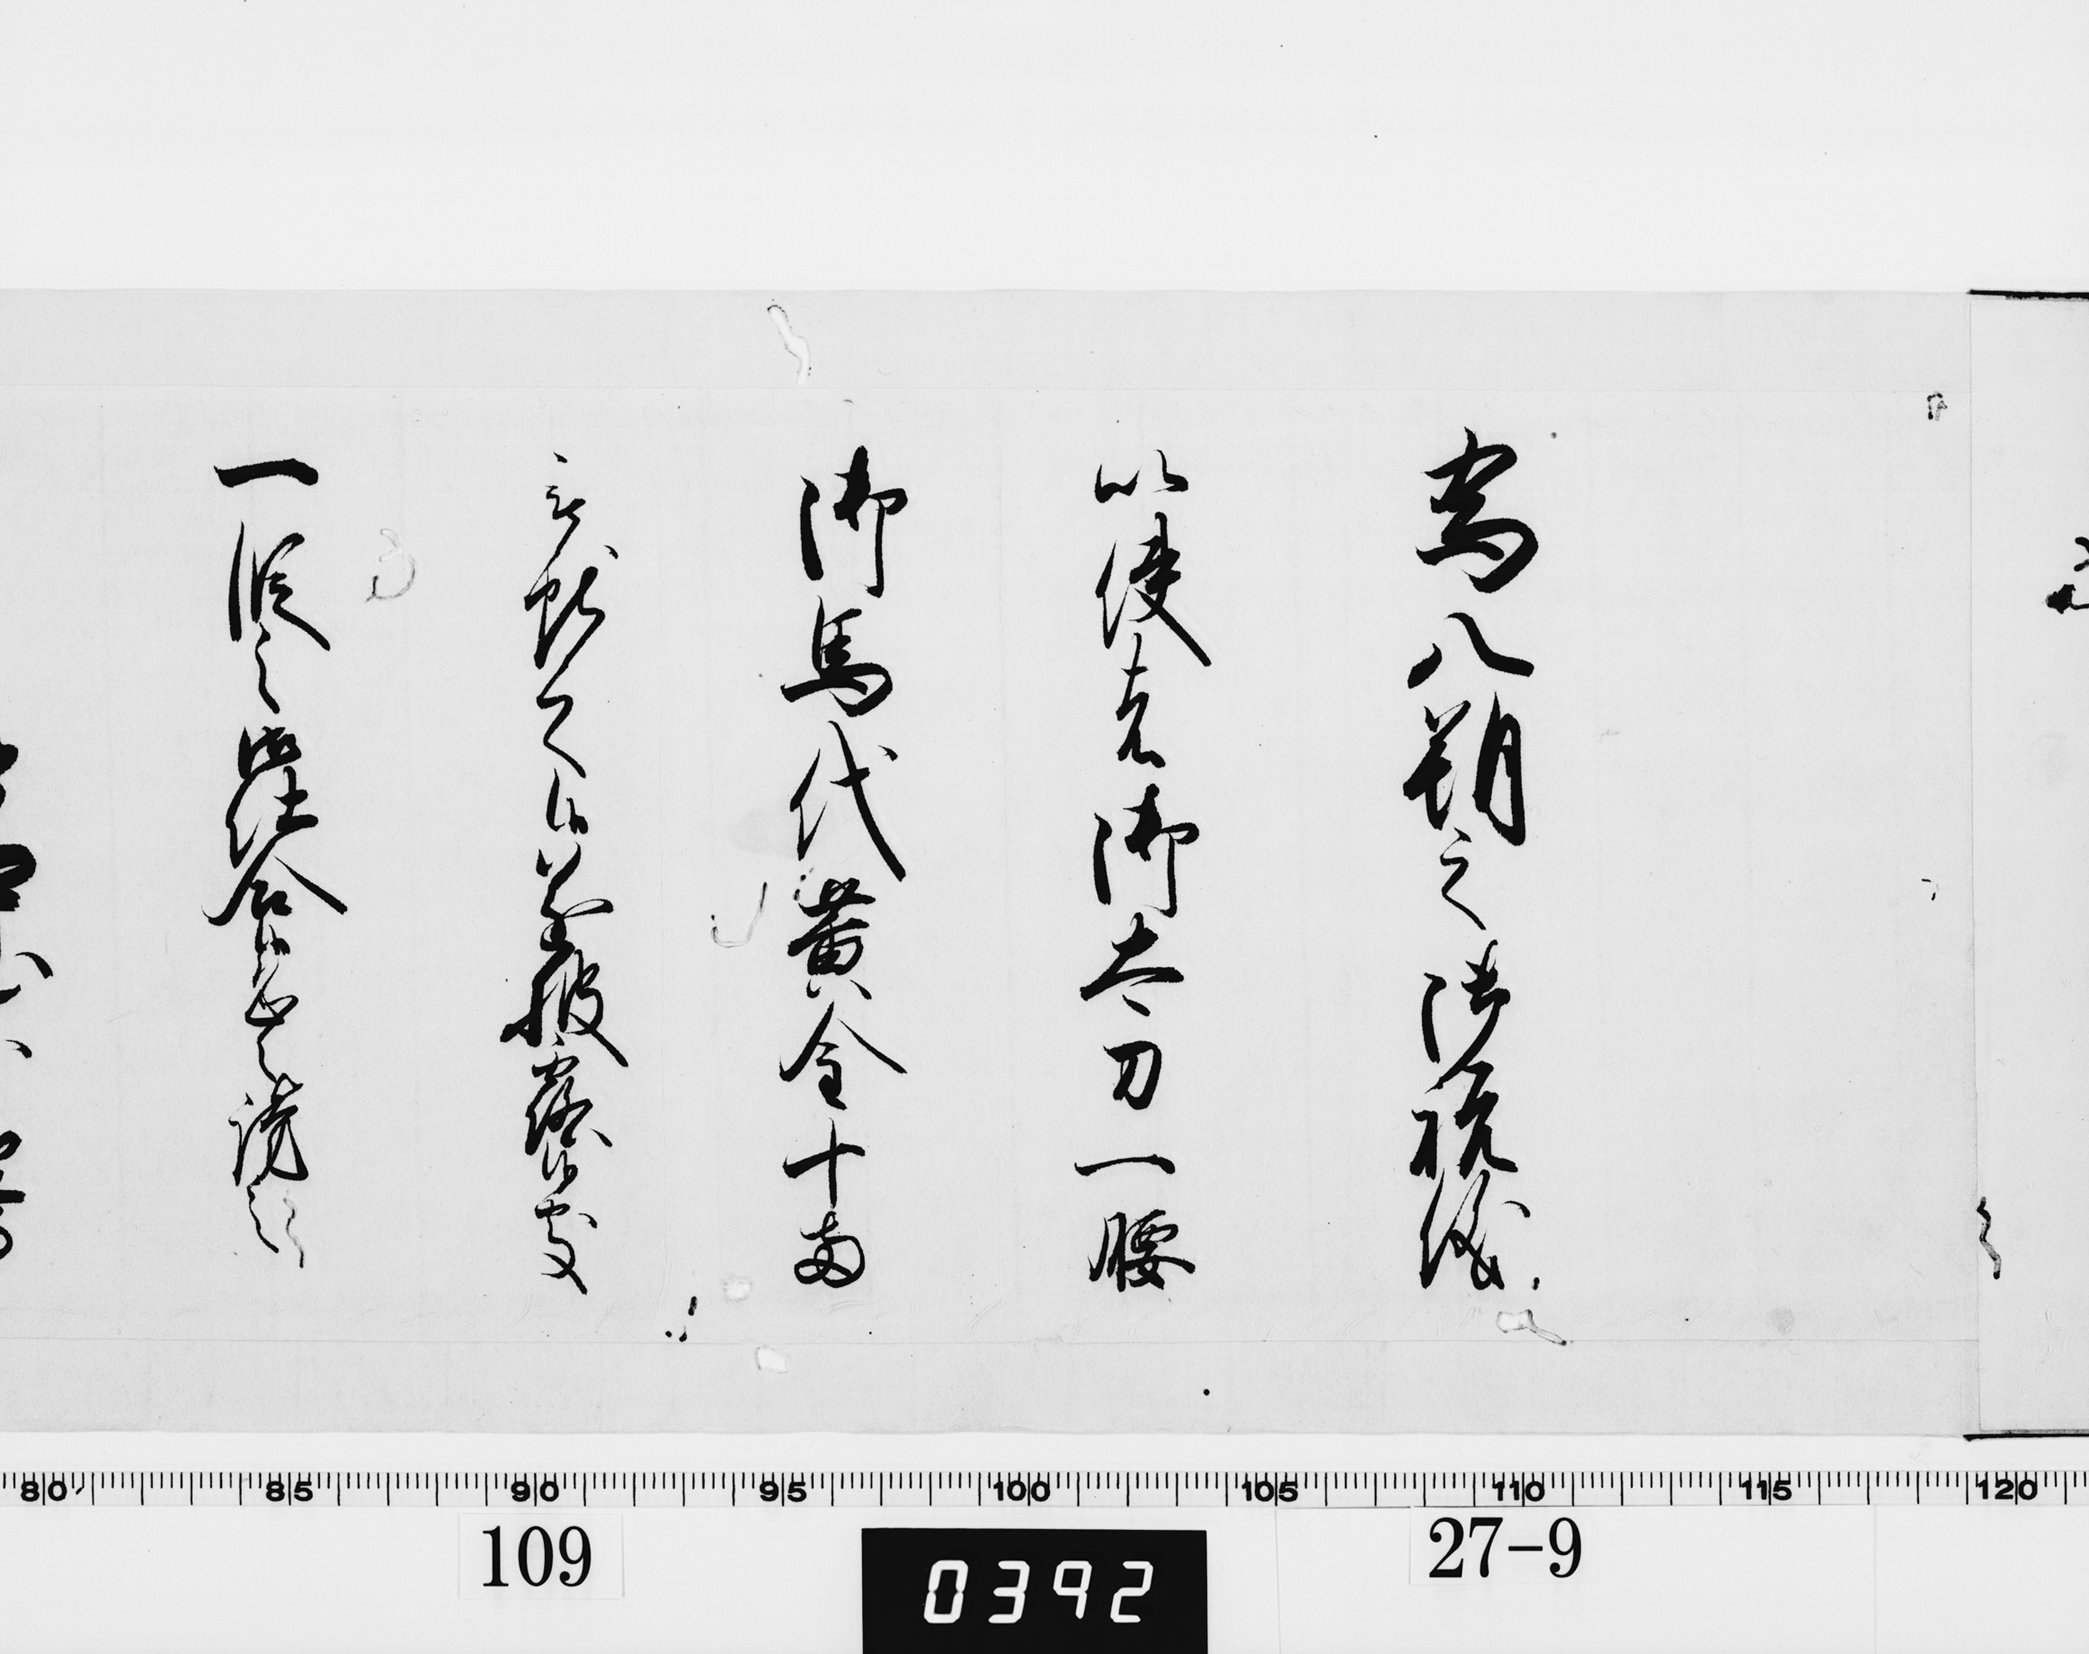 為八朔之御祝儀
以使者御太刀一腰
御馬代黄金十両
被献之候並披露候處
一段之御仕合候恐々謹言
80 85 90 95 100 105 110 115 120
109
0392
27-9